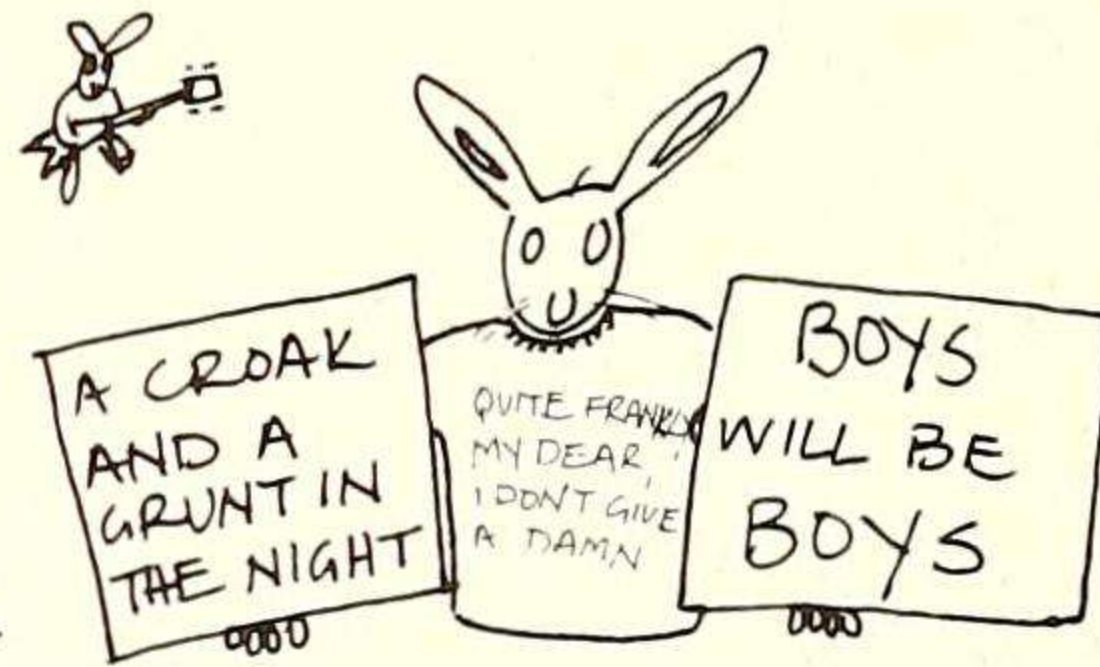 A CROAK
AND A
GRUNT IN
THE NIGHT
QUITE FRANKLY
MY DEAR,
I DON'T GIVE
A DAMN
BOYS
WILL BE
BOYS